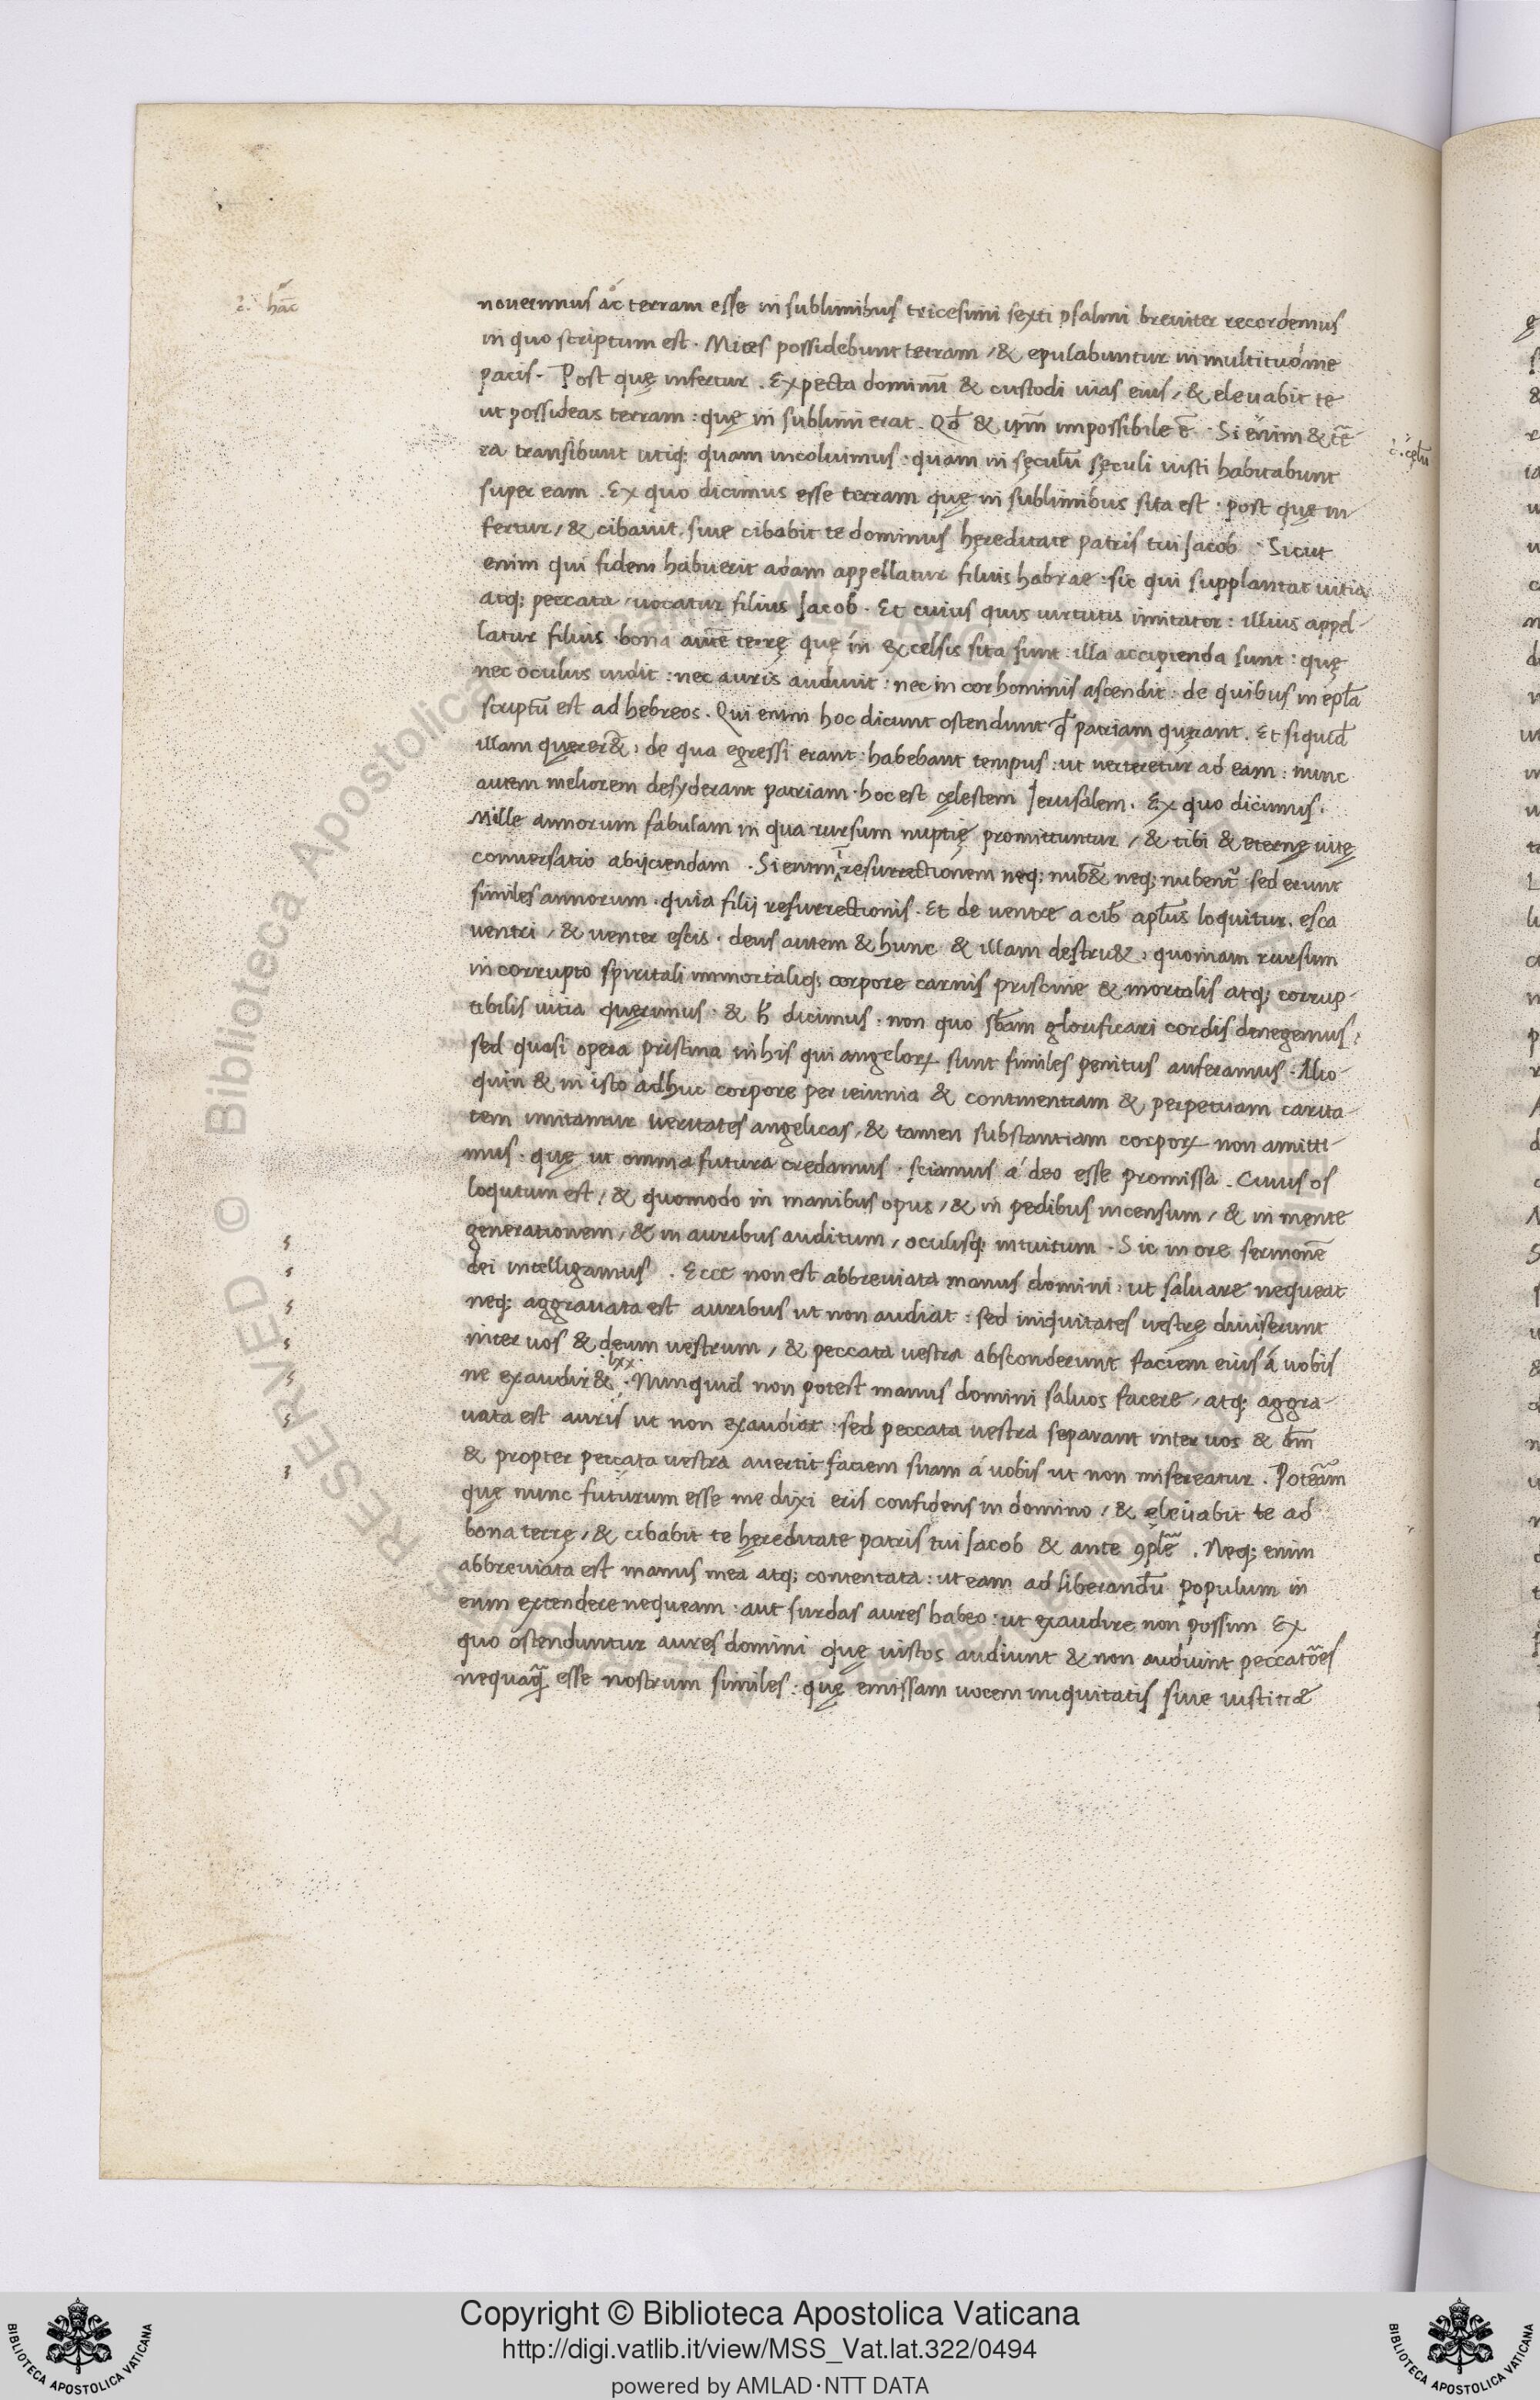 c. hac̄
nouerimus ac terram esse in sublimibus tricesimi sexti psalmi breuiter recordemus
in quo scriptum est. Mites possidebunt terram / & epulabuntur in multitudine
pacis. Post quę infertur. Expecta dominū & custodi uias eius / & eleuabit te
ut possideas terram: quę in sublimi erat. Qd̄ & ipm̄ impossibile ē. Si enim & ter̄
c. cęlū
ra transibunt utiq; quam incoluimus. quam in sęculū sęculi iusti habitabunt
super eam. Ex quo dicimus esse terram quę in sublimibus sita est. post quę in
fertur / & cibauit. siue cibabit te dominus hęreditate patris tui Jacob. Sicut
enim qui fidem habuerit adam appellatur filius habrae: sic qui supplantat uitia
atq; peccata / uocatur filius Jacob. Et cuius quis uirtutis imitator: illius appel-
latur filius. bona autē terrę quę in excelsis sita sunt illa accipienda sunt: quę
nec oculus uidit: nec auris audiuit: nec in cor hominis ascendit: de quibus in epl̄a
scriptū est ad hebreos. Qui enim hoc dicunt ostendunt qđ patriam quęrant. Et siquid̄
illam quęrer&: de qua egressi erant: habebant tempus: ut uerteretur ad eam: nunc
autem meliorem desyderant patriam. hoc est cęlestem Jerusalem. Ex quo dicimus.
Mille annorum fabulam in qua rursum nuptię promittuntur / & cibi & eternę uitę
conuersatio abijciendam. Si enim ī resurrectionem neq; nub& neq; nubent̄ sed erunt
similes annorum. quia filij resurrectionis. Et de uentre a cib̄ apl̄us loquitur. esca
uentri / & uenter escis. deus autem & hunc & illam destru&: quoniam rursum
in corrupto spiritali immortaliq; corpore carnis priscine & mortalis atq; corrup-
tibilis uitia quęrimus. & h̄ dicimus. non quo sb̄am glorificari cordis denegemus:
sed quasi opera pristina in his qui angeloꝝ sunt similes penitus auferamus. Alio-
quin & in isto adhuc corpore per ieiunia & continentiam & perpetuam carita-
tem imitantur ueritates angelicas / & tamen substantiam corpoꝝ non amitti-
mus. quę ut omnia futura credamus. sciamus á deo esse promissa. Cuius os
loqutum est / & quomodo in manibus opus / & in pedibus incensum / & in mente
generationem / & in auribus auditum / oculisq; intuitum. Sic in ore sermonē
dei intelligamus. Ecce non est abbreuiata manus domini: ut saluare nequeat
neq; aggrauata est auribus ut non audiat: sed iniquitates uestrę diuiserunt
inter uos & deum uestrum / & peccata uestra absconderunt faciem eius á uobis
lxx
ne exaudir&. Nunquid non potest manus domini saluos facere / atq; aggra-
uata est auris ut non exaudiat: sed peccata uestra separant inter uos & dm̄
& propter peccata uestra auertit faciem suam á uobis ut non misereatur. Poteām
quę nunc futurum esse me dixi eris confidens in domino / & eleuabit te ad
bona terrę / & cibabit te hęreditate patris tui Jacob & ante ꝯplē. Neq; enim
abbreuiata est manus mea atq; contentata: ut eam ad liberandū populum in
eum extendere nequeam: aut surdas aures habeo: ut exaudire non possim Ex
quo ostenduntur aures domini quę iustos audiunt & non audiunt peccatōres
nequaq̄ esse nostrum similes: quę emissam uocem iniquitatis siue iustitiæ
© Biblioteca Apostolica Vaticana
RESERVED
Copyright © Biblioteca Apostolica Vaticana
http://digi.vatlib.it/view/MSS_Vat.lat.322/0494
powered by AMLAD·NTT DATA
BIBLIOTECA APOSTOLICA VATICANA
BIBLIOTECA APOSTOLICA VATICANA